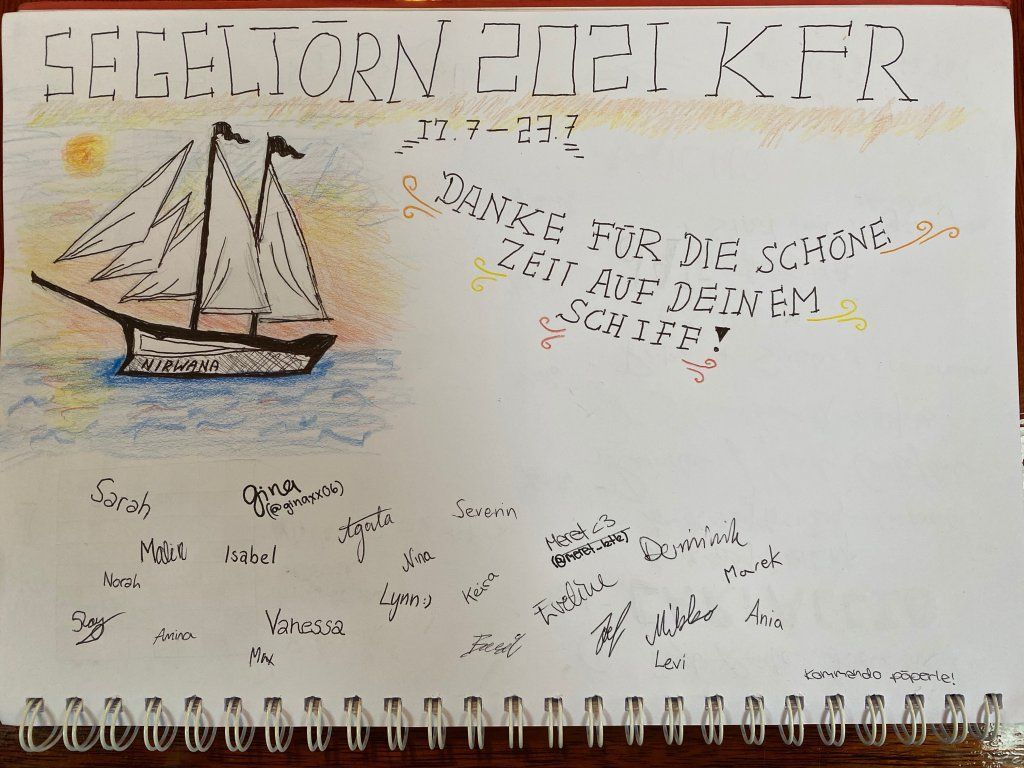 SEGELTÖRN 2021 KFR
17.7 – 23.7
DANKE FÜR DIE SCHÖNE
ZEIT AUF DEINEM
SCHIFF!
NIRWANA
Sarah
gina
(@ginaxx06)
Agata
Severin
Meret <3
Dominik
Malin
Isabel
Nina
Marek
Norah
Lynn:)
Keira
Eveline
Amina
Vanessa
Mikko
Ania
Max
Levi
Kommando päperle!